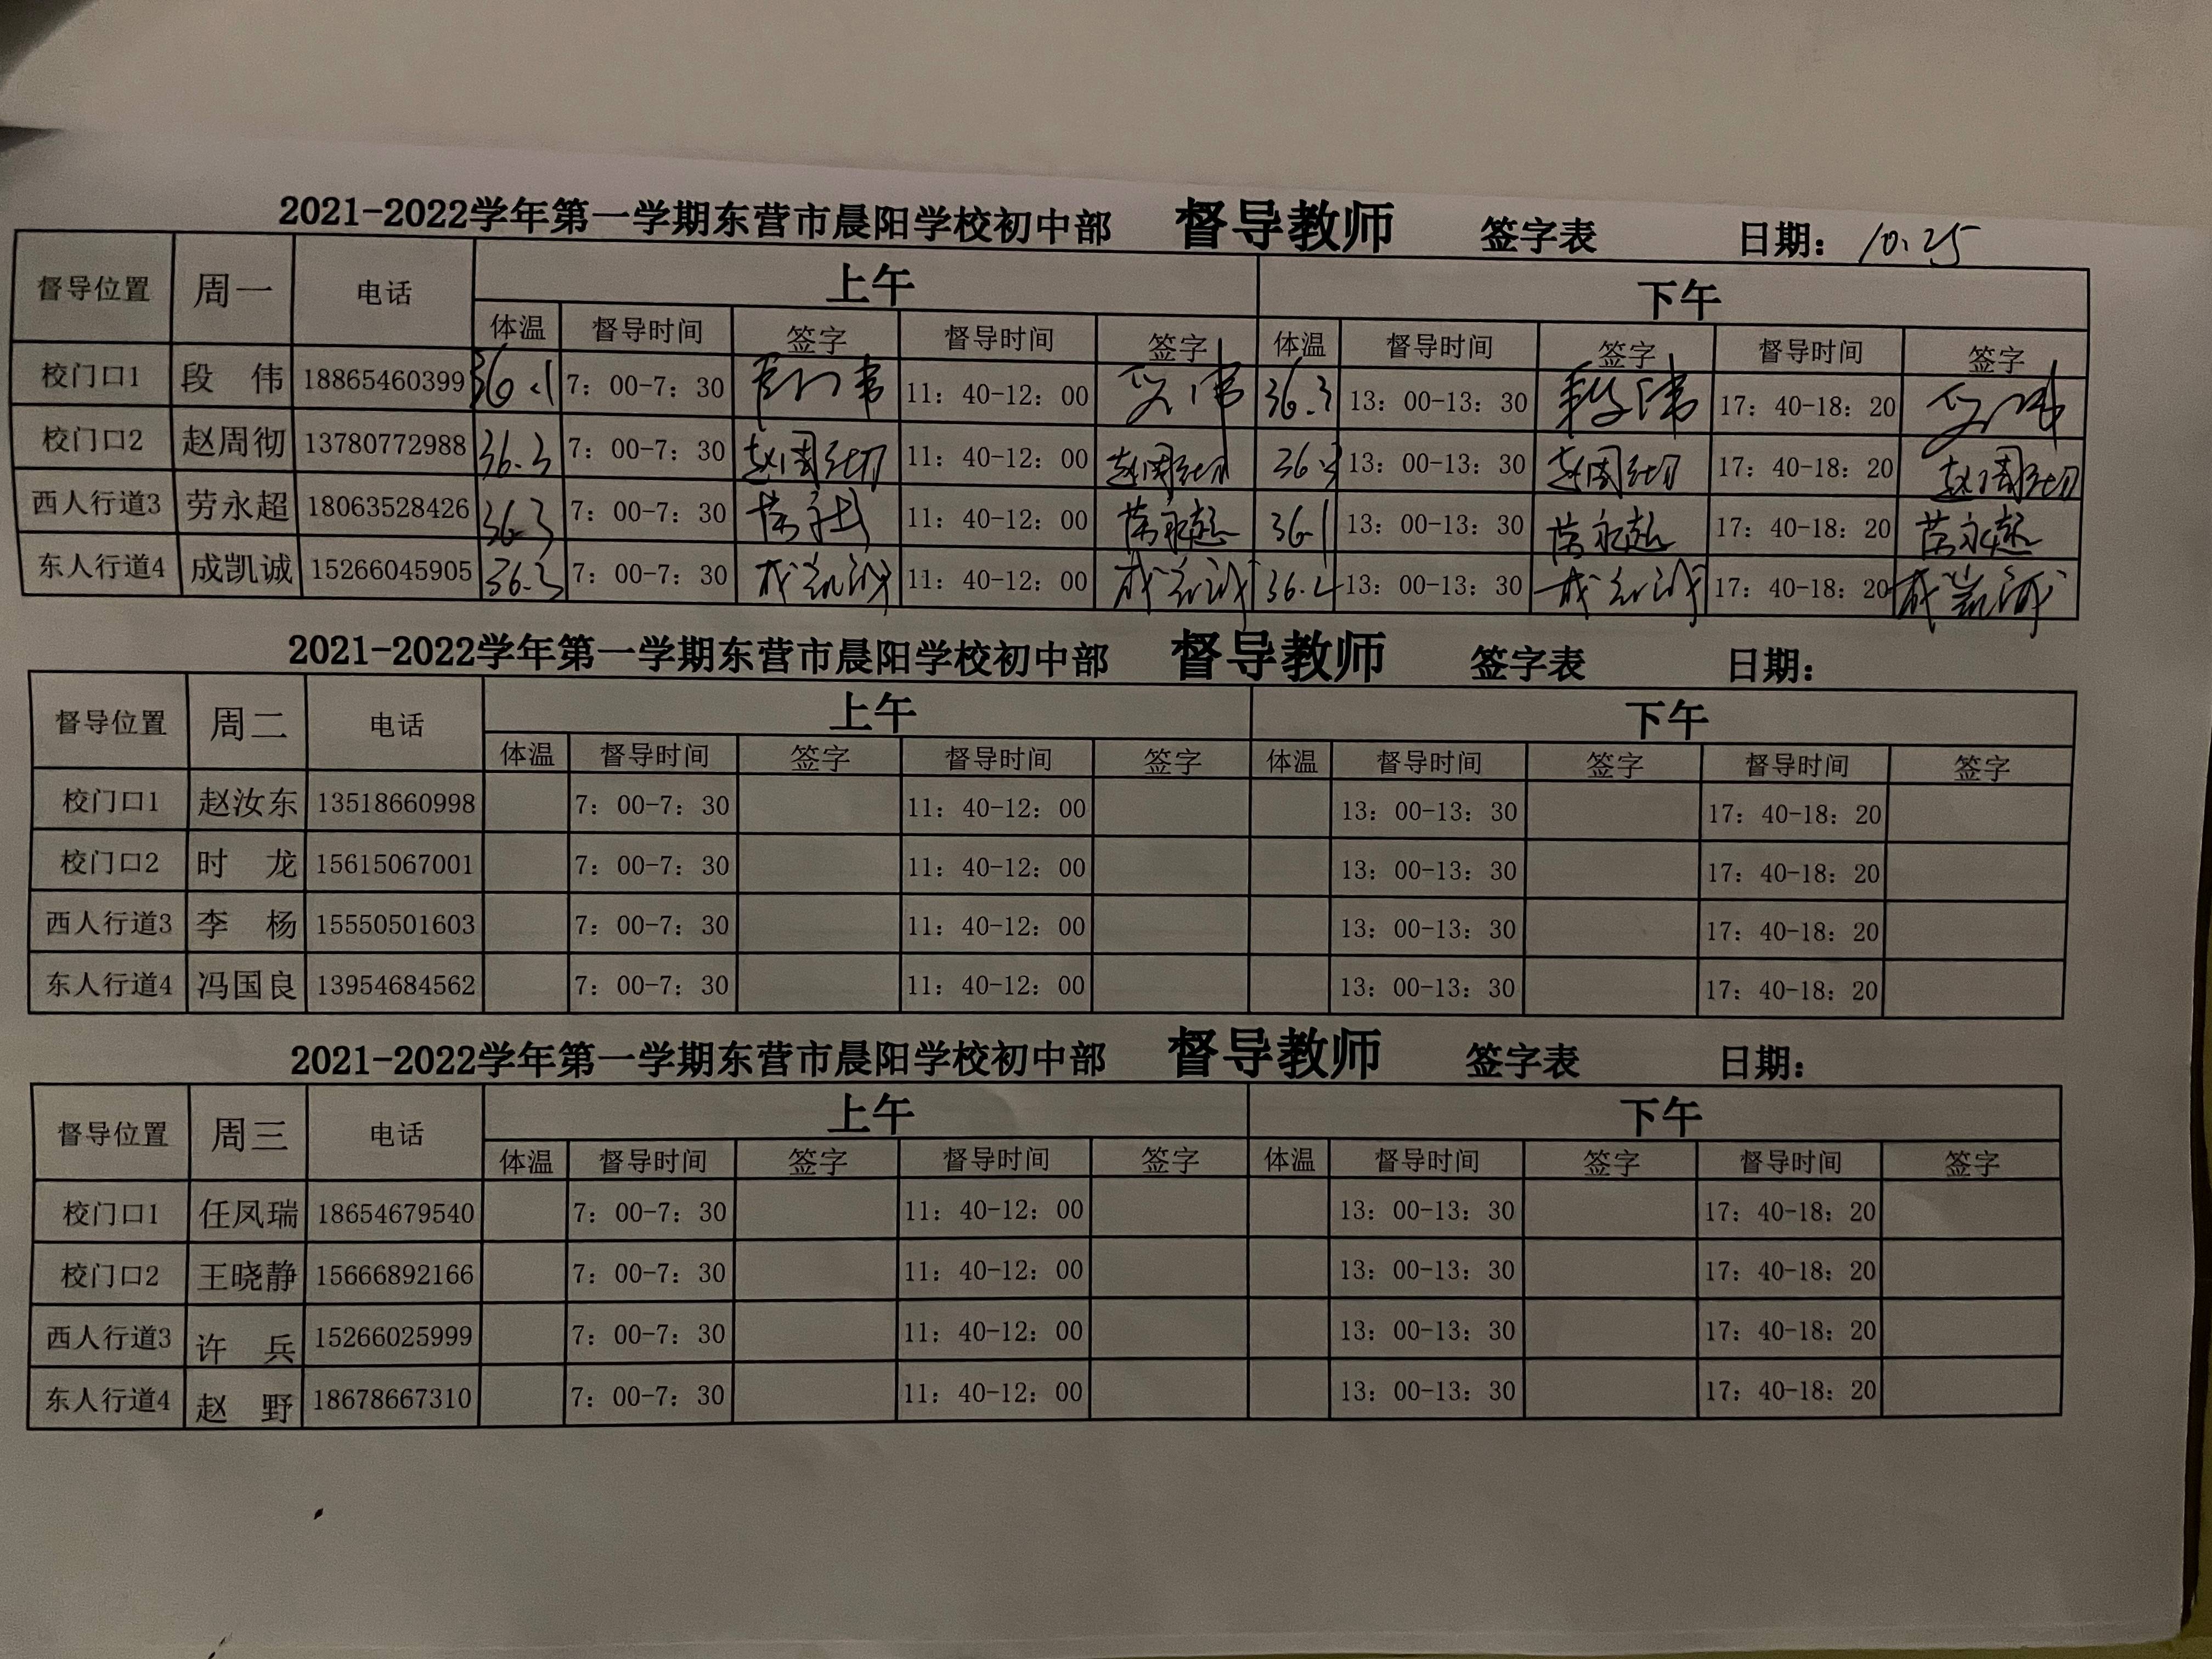 2021-2022学年第一学期东营市晨阳学校初中部 督导教师 签字表 日期: 10.25
督导位置 周一 电话 上午 下午
体温 督导时间 签字 督导时间 签字 体温 督导时间 签字 督导时间 签字
校门口1 段 伟 18865460399 36.1 7: 00-7: 30 段伟 11: 40-12: 00 段伟 36.3 13: 00-13: 30 段伟 17: 40-18: 20 段伟
校门口2 赵周彻 13780772988 36.3 7: 00-7: 30 赵周彻 11: 40-12: 00 赵周彻 13: 00-13: 30 赵周彻 17: 40-18: 20 赵周彻
西人行道3 劳永超 18063528426 36.3 7: 00-7: 30 劳永超 11: 40-12: 00 劳永超 36.1 13: 00-13: 30 劳永超 17: 40-18: 20 劳永超
东人行道4 成凯诚 15266045905 36.3 7: 00-7: 30 成凯诚 11: 40-12: 00 成凯诚 13: 00-13: 30 成凯诚 17: 40-18: 20 成凯诚
2021-2022学年第一学期东营市晨阳学校初中部 督导教师 签字表 日期:
督导位置 周二 电话 上午 下午
体温 督导时间 签字 督导时间 签字 体温 督导时间 签字 督导时间 签字
校门口1 赵汝东 13518660998 7: 00-7: 30 11: 40-12: 00 13: 00-13: 30 17: 40-18: 20
校门口2 时 龙 15615067001 7: 00-7: 30 11: 40-12: 00 13: 00-13: 30 17: 40-18: 20
西人行道3 李 杨 15550501603 7: 00-7: 30 11: 40-12: 00 13: 00-13: 30 17: 40-18: 20
东人行道4 冯国良 13954684562 7: 00-7: 30 11: 40-12: 00 13: 00-13: 30 17: 40-18: 20
2021-2022学年第一学期东营市晨阳学校初中部 督导教师 签字表 日期:
督导位置 周三 电话 上午 下午
体温 督导时间 签字 督导时间 签字 体温 督导时间 签字 督导时间 签字
校门口1 任凤瑞 18654679540 7: 00-7: 30 11: 40-12: 00 13: 00-13: 30 17: 40-18: 20
校门口2 王晓静 15666892166 7: 00-7: 30 11: 40-12: 00 13: 00-13: 30 17: 40-18: 20
西人行道3 许 兵 15266025999 7: 00-7: 30 11: 40-12: 00 13: 00-13: 30 17: 40-18: 20
东人行道4 赵 野 18678667310 7: 00-7: 30 11: 40-12: 00 13: 00-13: 30 17: 40-18: 20